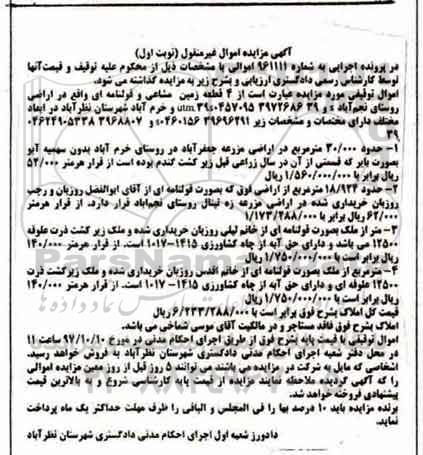 آگهی مزایده اموال غیرمنقول (نوبت اول)
در پرونده اجرایی به شماره ۹۶۱۱۱۱ اموالی با مشخصات ذیل از محکوم علیه توقیف و قیمت‌آنها
توسط کارشناس رسمی دادگستری ارزیابی و بشرح زیر به مزایده گذاشته می شود.
اموال توقیفی مورد مزایده عبارت است از ۴ قطعه زمین مشاعی و قولنامه ای واقع در اراضی
روستای نجم‌آباد و ۳۹ ۳۹۷۲۶۸۶ ۰۴۵۷۰۹۵ ۳۹.utm و خرم آباد شهرستان نظرآباد در ابعاد
مختلف دارای مختصات و مشخصات زیر ۳۹۶۹۶۴۹۱ ۰۴۶۰۱۵۶ و ۳۹۶۸۸۰۷ ۰۴۶۲۴۹۰۵۳۳۸
۳۹
۱- حدود ۳۰/۰۰۰ مترمربع در اراضی مزرعه جعفرآباد در روستای خرم آباد بدون سهمیه آبو
بصورت بایر که قسمتی از آن در سال زراعی قبل زیر کشت گندم بوده است از قرار هرمتر ۵۲/۰۰۰
ریال برابر با ۱/۵۶۰/۰۰۰/۰۰۰ ریال
۲- حدود ۱۸/۹۲۴ مترمربع از اراضی فوق که بصورت قولنامه ای از آقای ابوالفضل روزبان و رجب
روزبان خریداری شده در اراضی مزرعه زه فینال روستای نجم‌آباد قرار دارد. از قرار هرمتر
۶۲/۰۰۰ ریال برابر با ۱/۱۷۳/۲۸۸/۰۰۰ ریال
۳- متر از ملک بصورت قولنامه ای از خانم لیلی روزبان خریداری شده و ملک زیر کشت ذرت علوفه
۱۲۵۰۰ می باشد و دارای حق آبه از چاه کشاورزی ۱۴۱۵-۱۰۱۷ است. از قرار هرمتر ۱۴۰/۰۰۰
ریال برابر است با ۱/۷۵۰/۰۰۰/۰۰۰ ریال
۴- مترمربع از ملک بصورت قولنامه ای از خانم اقدس روزبان خریداری شده و ملک زیرکشت ذرت
۱۲۵۰۰ علوفه ای و دارای حق آبه از چاه کشاورزی ۱۴۱۵-۱۰۱۷ است. از قرار هرمتر ۱۴۰/۰۰۰
ریال برابر است با ۱/۷۵۰/۰۰۰/۰۰۰ ریال
قیمت کل املاک بشرح فوق برابر است با ۶/۲۳۳/۲۸۸/۰۰۰ ریال
املاک بشرح فوق فاقد مستاجر و در مالکیت آقای موسی شماخی می باشد.
اموال توقیفی با قیمت پایه بشرح فوق از طریق اجرای احکام مدنی در مورخ ۹۷/۱۰/۱۰ ساعت ۱۱
در محل دفتر شعبه اجرای احکام مدنی دادگستری شهرستان نظرآباد به فروش خواهد رسید.
اشخاصی که مایل به شرکت در مزایده می باشند می توانند ۵ روز قبل از روز معین مزایده اموالی
را که آگهی گردیده ملاحظه نمایند مزایده از قیمت پایه کارشناسی شروع و به بالاترین قیمت
پیشنهادی فروخته خواهد شد.
برنده مزایده باید ۱۰ درصد بها را فی المجلس و الباقی را ظرف مهلت حداکثر یک ماه پرداخت
نماید.
دادورز شعبه اول اجرای احکام مدنی دادگستری شهرستان نظرآباد
ParsNamadData